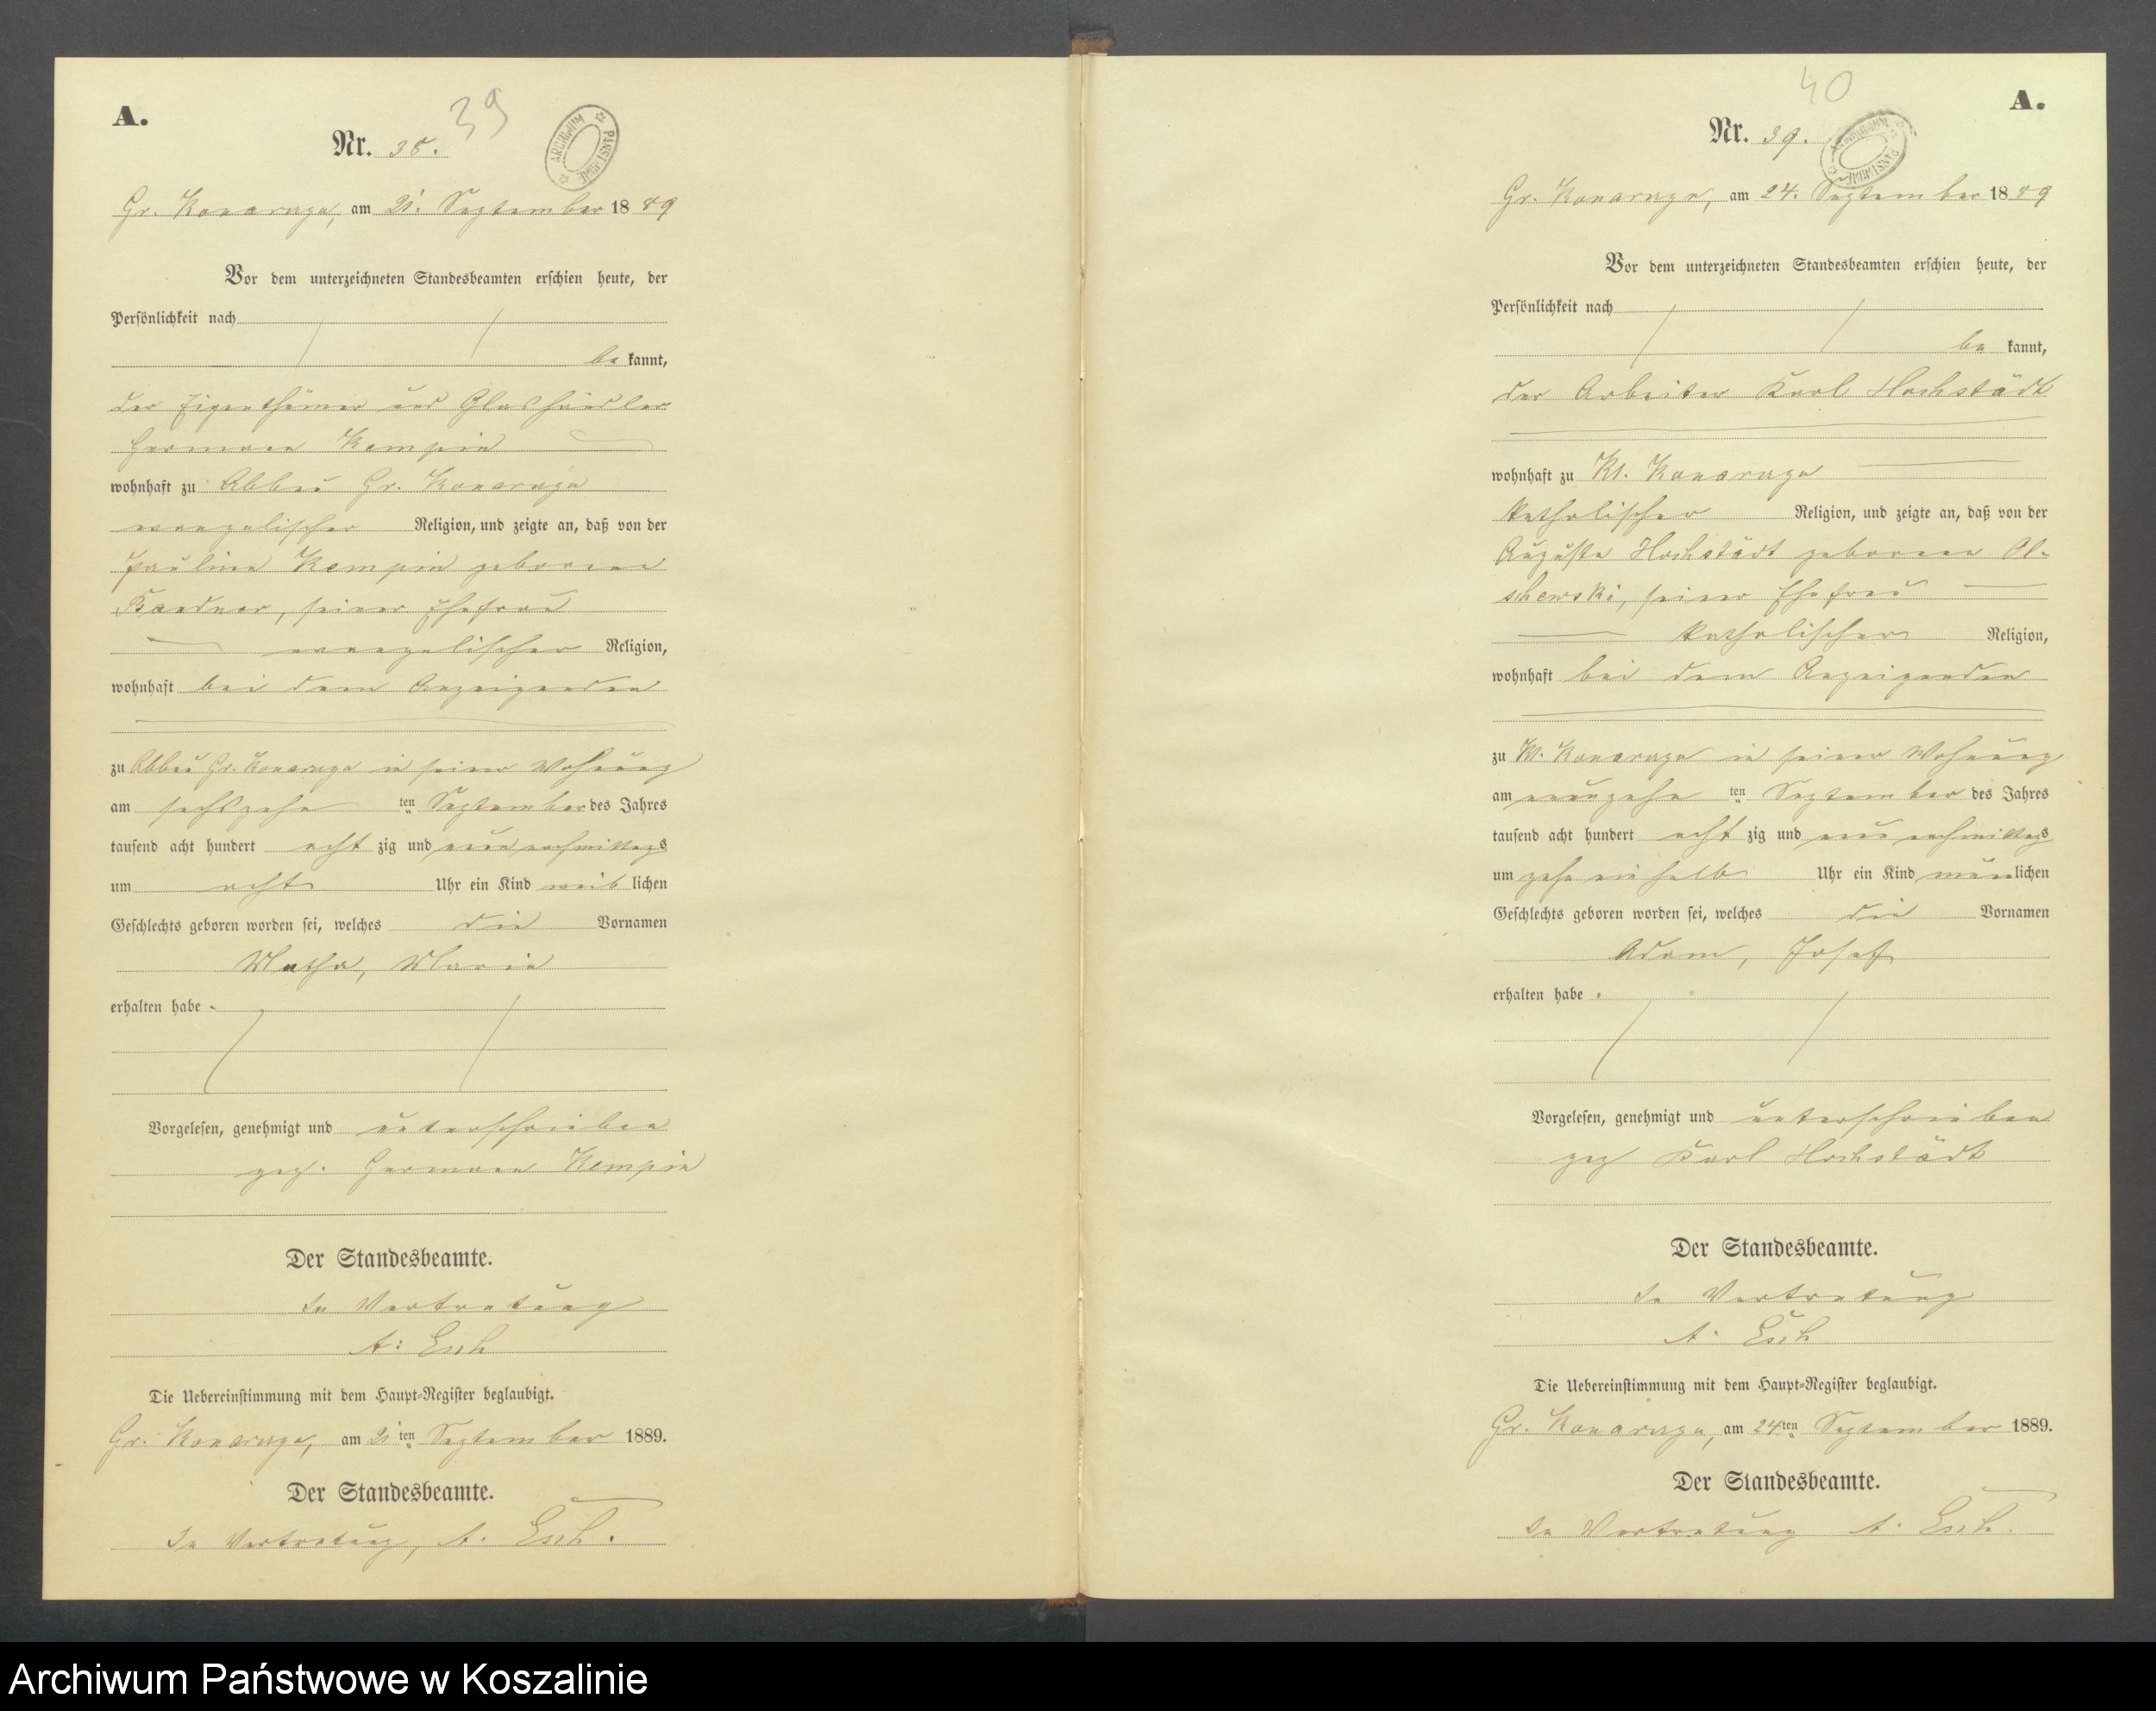 39
A.
Nr. 38.
ARCHIWUM PAŃSTWOWE
Gr. Konarzyn, am 21. September 1889
Vor dem unterzeichneten Standesbeamten erschien heute, der
Persönlichkeit nach
be kannt,
der Eigenthümer und Glashändler
Hermann Kempin
wohnhaft zu Abbau Gr. Konarzyn
evangelischer Religion, und zeigte an, daß von der
Pauline Kempin geborene
seiner Ehefrau
evangelischer Religion,
wohnhaft bei dem Anzeigenden
zu Abbau Gr. Konarzyn in seiner Wohnung
am sechszehn ten September des Jahres
tausend acht hundert acht zig und neun nachmittags
um acht Uhr ein Kind weib lichen
Geschlechts geboren worden sei, welches die Vornamen
Marie
erhalten habe.
Vorgelesen, genehmigt und unterschrieben
gez. Hermann Kempin
Der Standesbeamte.
In Vertretung
A. Esch
Die Uebereinstimmung mit dem Haupt-Register beglaubigt.
Gr. Konarzyn, am 21ten September 1889.
Der Standesbeamte.
In Vertretung, A. Esch.
40
A.
Nr. 39.
ARCHIWUM PAŃSTWOWE
Gr. Konarzyn, am 24. September 1889
Vor dem unterzeichneten Standesbeamten erschien heute, der
Persönlichkeit nach
be kannt,
der Arbeiter Karl Hochstädt
wohnhaft zu Kl. Konarzyn
katholischer Religion, und zeigte an, daß von der
Auguste Hochstädt geborene Ol-
schewski, seiner Ehefrau
katholischer Religion,
wohnhaft bei dem Anzeigenden
zu Kl. Konarzyn in seiner Wohnung
am neunzehn ten September des Jahres
tausend acht hundert acht zig und neun nachmittags
um zehn ein halb Uhr ein Kind männlichen
Geschlechts geboren worden sei, welches die Vornamen
Adam, Josef
erhalten habe.
Vorgelesen, genehmigt und unterschrieben
gez Karl Hochstädt
Der Standesbeamte.
In Vertretung
A. Esch
Die Uebereinstimmung mit dem Haupt-Register beglaubigt.
Gr. Konarzyn, am 24ten September 1889.
Der Standesbeamte.
In Vertretung A. Esch.
Archiwum Państwowe w Koszalinie